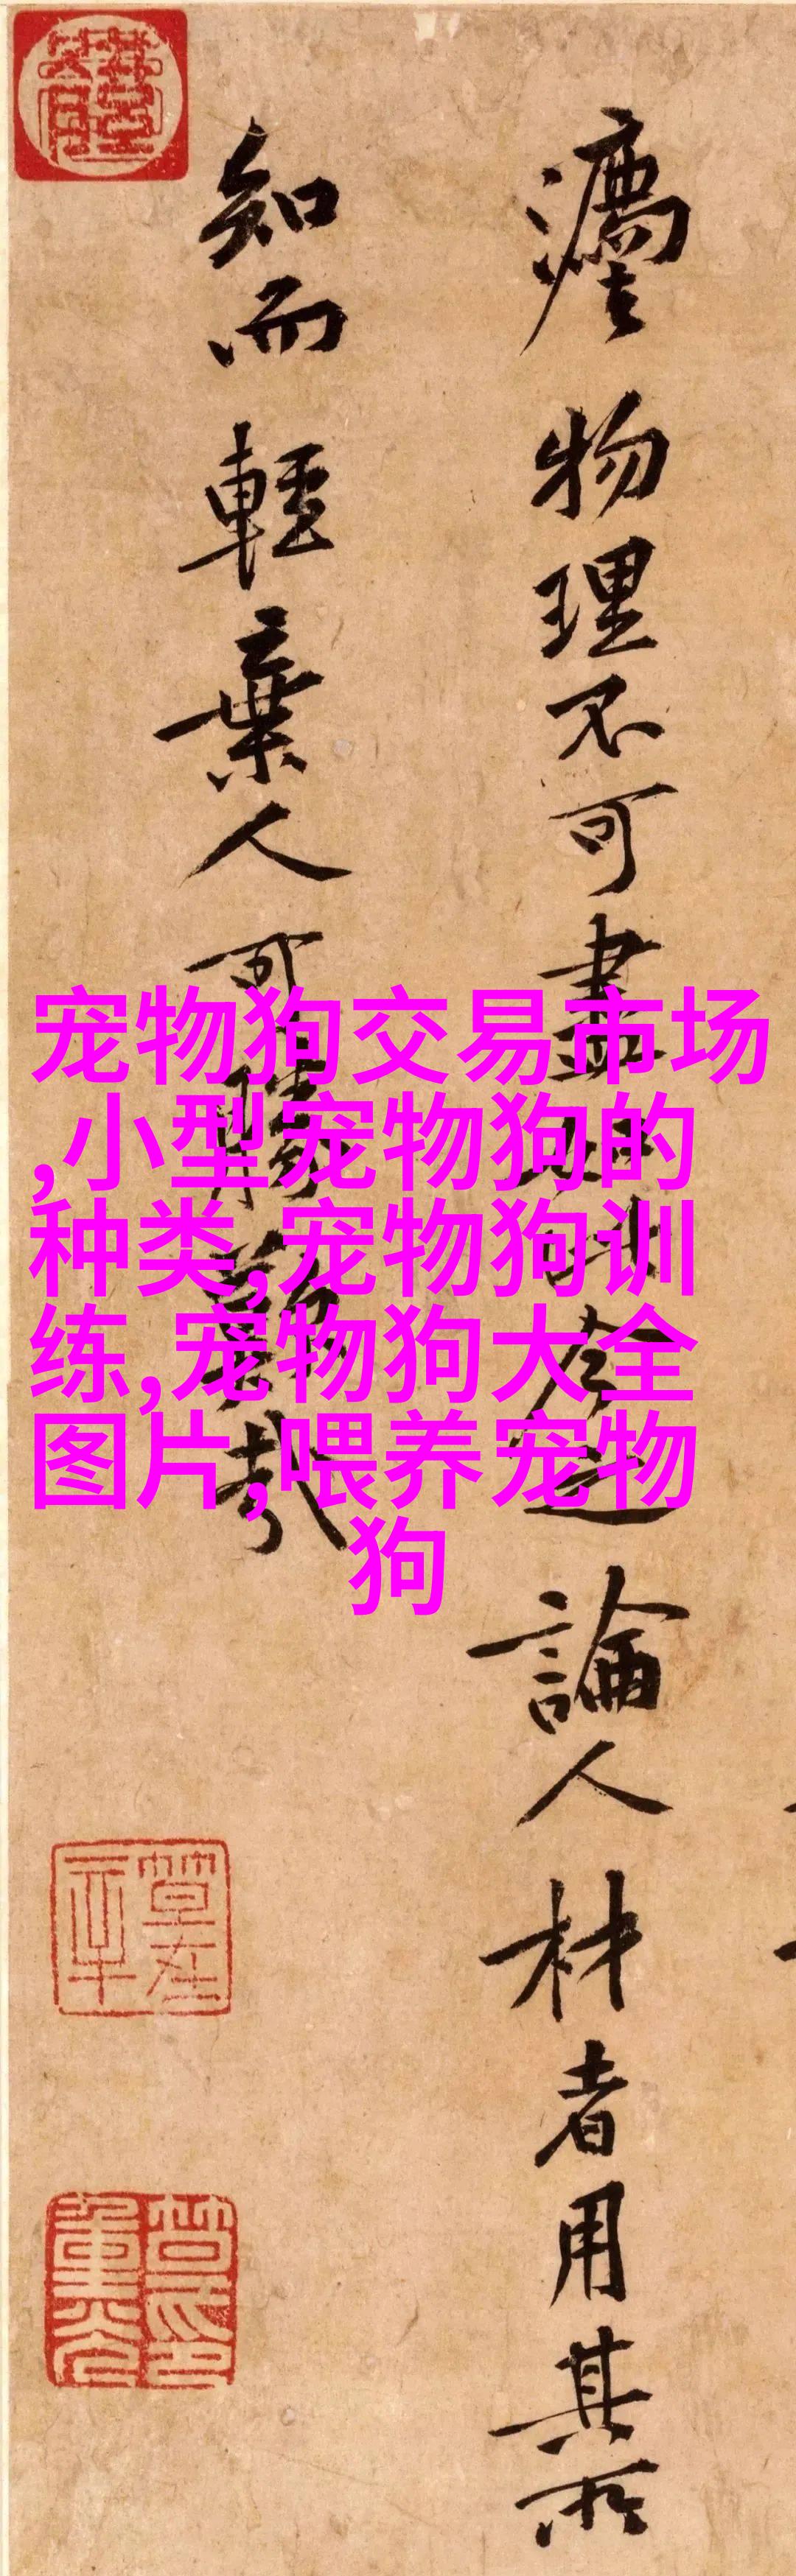 物理不可盡如此今之論人材者用其所
知而輕棄人可勝歎哉
宠物狗交易市场
,小型宠物狗的
种类,宠物狗训
练,宠物狗大全
图片,喂养宠物
狗